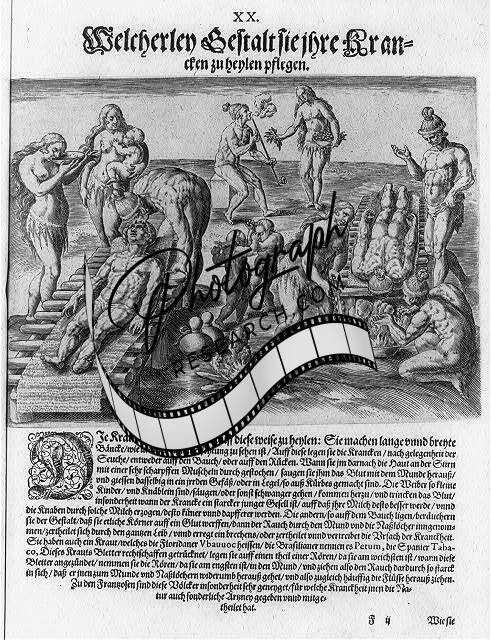 XX.
Welcherley Gestalt sie jhre Kran-
cken zu heylen pflegen.
Photograph
RESEARCH.COM
DIe auff diese weise zu heylen: Sie machen lange vnnd breyte
Bäncke / zu sehen ist / Auff diese legen sie die Krancken / nach gelegenheit der
Seuche / entweder auff den Bauch / oder auff den Rücken. Wann sie jm darnach die Haut an der Stirn
mit einer sehr scharpffen Muscheln durch gestochen / saugen sie jhm das Blut mit dem Munde herauß /
vnd giessen dasselbig in ein jrrden Gefäß / oder in Legel / so auß Kürbes gemacht sind. Die Weiber so kleine
Kinder / vnd Knäblein sind / säugen / oder sonst schwanger gehen / kommen herzu / vnd trincken das Blut /
insonderheit wann der Krancke ein starcker junger Gesell ist / auff daß jhre Milch desto besser werde / vnnd
die Knaben durch solche Milch erzogen / desto küner vnnd dapfferer werden. Die andern / so auff dem Bauch ligen / beräuchern
sie der Gestalt / daß sie etliche Körner auff ein Glut werffen / dann der Rauch durch den Mund vnd die Naßlöcher inngenom-
men / zertheilet sich durch den gantzen Leib / vnnd erregt ein vbrechen / oder zertheilet vnnd vertreibt die Vrsach der Kranckheit.
Sie haben auch ein Kraut / welches die Floridaner Vbauuoc heissen / die Brasilianer nennen es Petum, die Spanier Taba-
co, Dieses Krauts Bletter rechtschaffen getrücknet / legen sie auff einen theil einer Rören / da sie am weitsten ist / wann diese
Bletter angezündet / nemmen sie die Rören / da sie am engsten ist / in den Mund / vnd ziehen also den Rauch dardurch so starck
in sich / daß er jnen zum Munde vnd Naßlöchern widerumb herauß gehet / vnd also zugleich häuffig die Flüsse herauß ziehen.
Zu den Frantzosen sind diese Völcker insonderheit sehr geneyget / für welche Kranckheit jnen die Na-
tur auch sonderliche Artzney gegeben vnnd mitge-
theilet hat.
F ij Wie sie